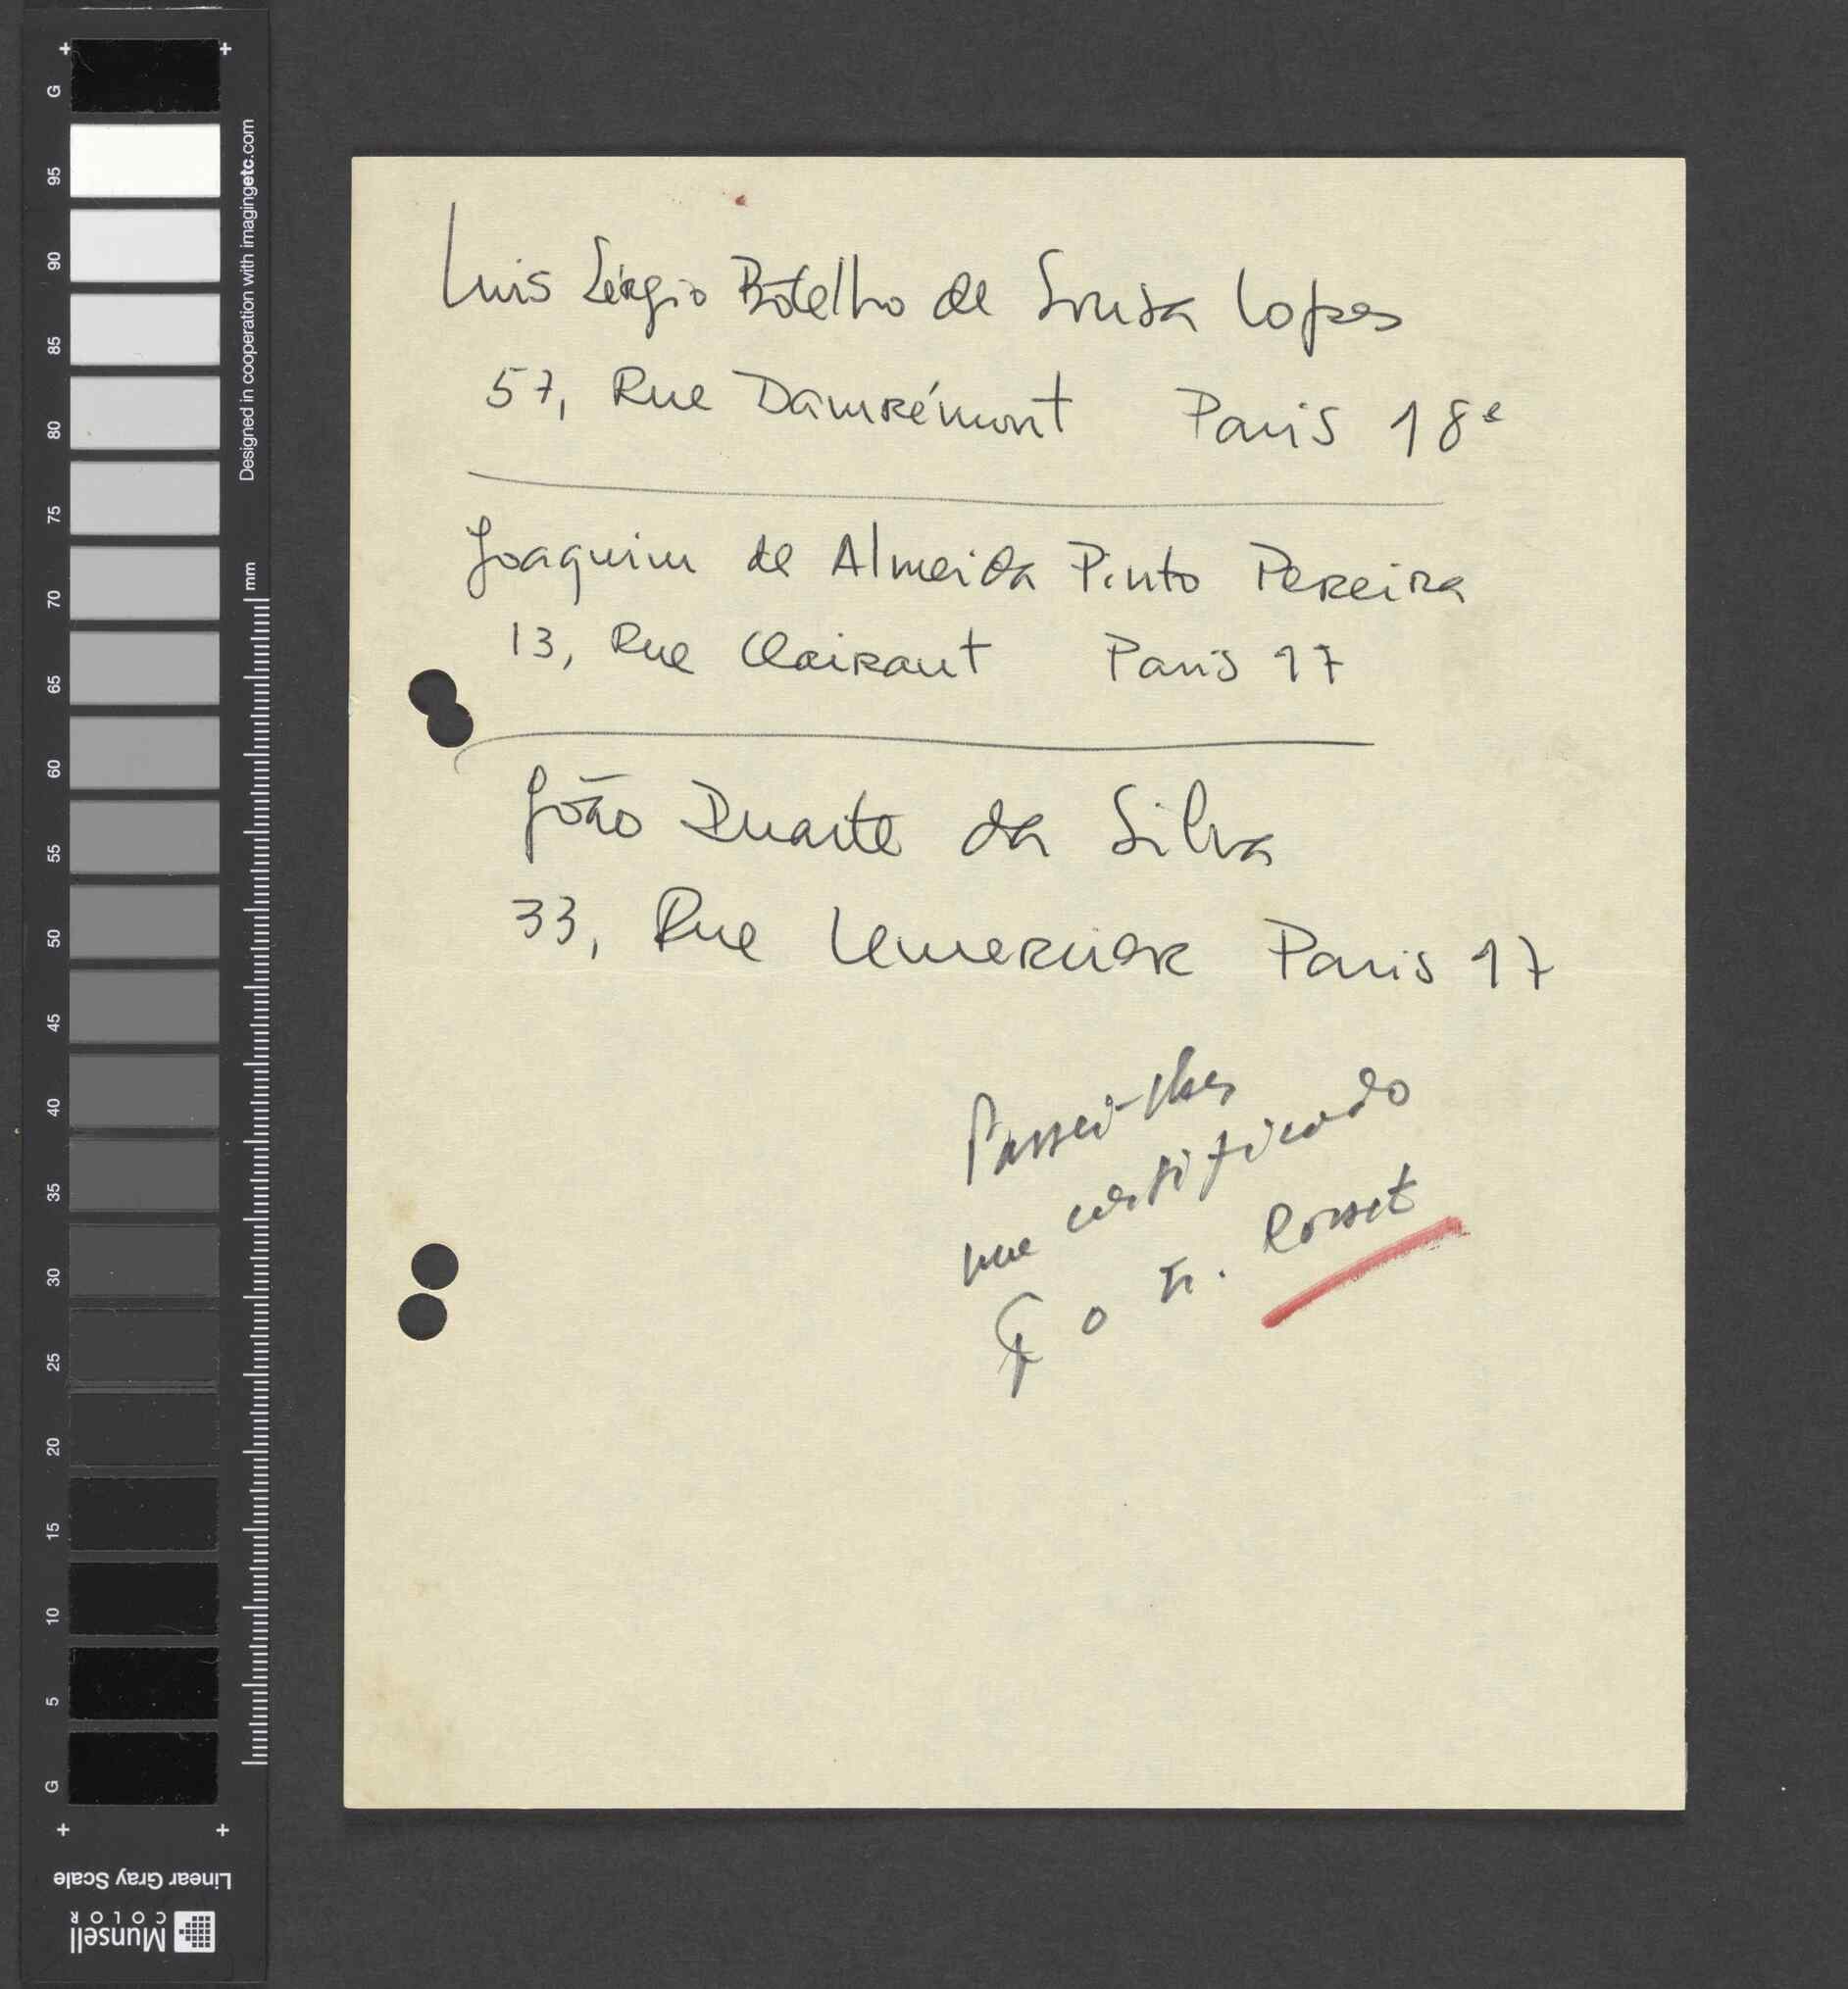 Luis Sérgio Botelho de Sousa Lopes
57, Rue Damrémont Paris 18e
Joaquim de Almeida Pinto Pereira
13, Rue Clairaut Paris 17
João Duarte da Silva
33, Rue Lemercier Paris 17
Passei-lhes
um certificado
o
G
95
90
85
80
75
70
65
60
55
50
45
40
35
30
25
20
15
10
5
G
Designed in cooperation with imagingetc.com
mm
Linear Gray Scale
Munsell
COLOR